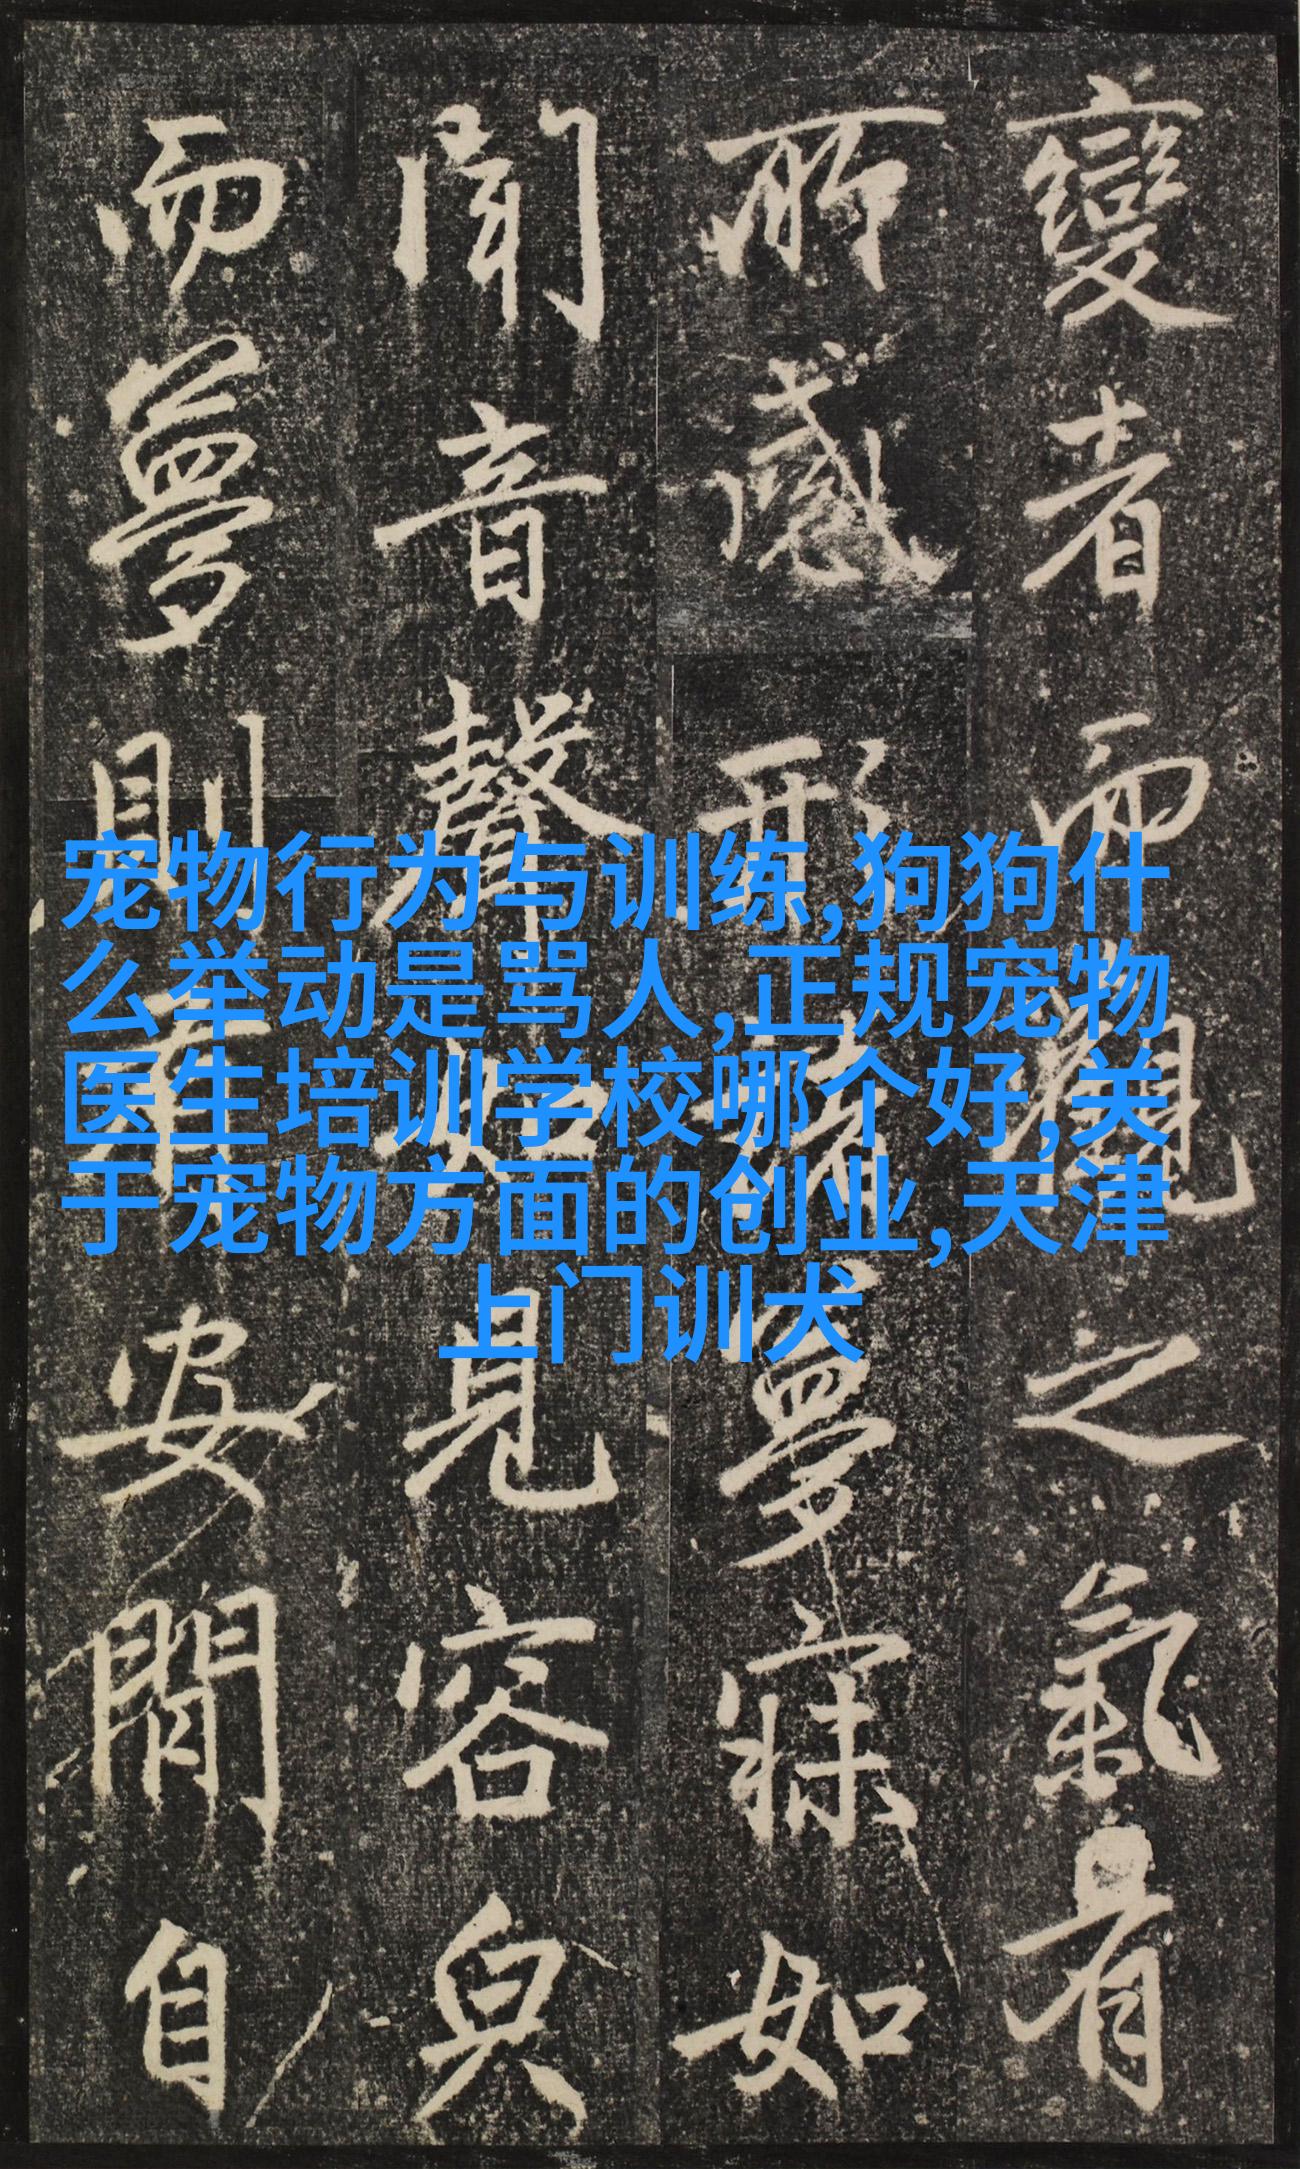 變者而觀之氣有
所感形諸夢寐如
聞音聲如見容皃
而夢則安閒自
宠物行为与训练,狗狗什
么举动是骂人,正规宠物
医生培训学校哪个好,关
于宠物方面的创业,天津
上门训犬